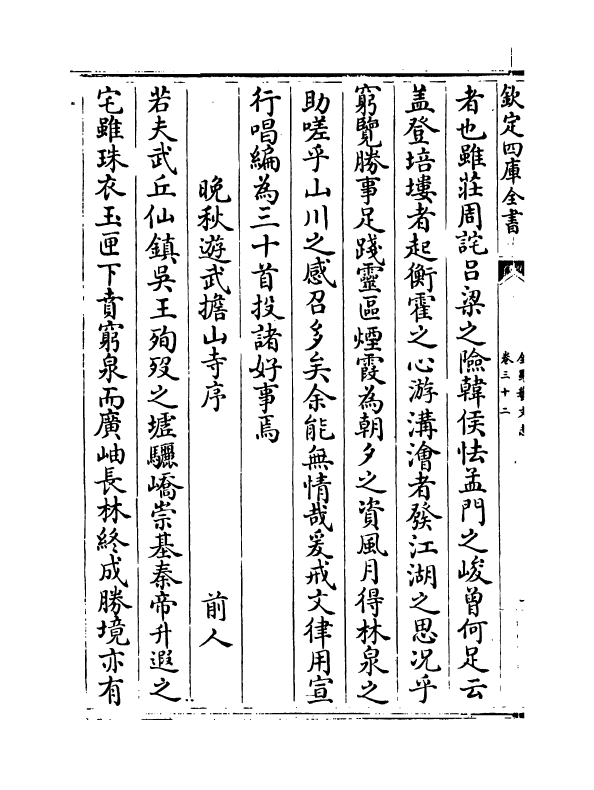 欽定四庫全書
全蜀藝文志
卷三十二
者也雖莊周詫呂梁之險韓侯怯孟門之峻曾何足云
盖登培塿者起衡霍之心游溝澮者發江湖之思况乎
窮覽勝事足踐靈區煙霞為朝夕之資風月得林泉之
助嗟乎山川之感召多矣余能無情哉爰戒文律用宣
行唱編為三十首投諸好事焉
晚秋遊武擔山寺序 前人
若夫武丘仙鎮吳王殉歿之墟驪嶠崇基秦帝升遐之
宅雖珠衣玉匣下賁窮泉而廣岫長林終成勝境亦有